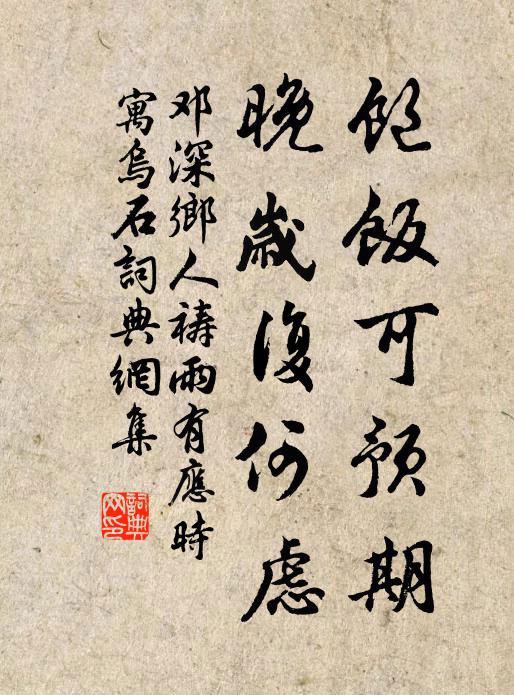 飽飯可預期
晚歲復何慮
邓深鄉人禱雨有應時
寓烏石詞典網集
詞典
网印